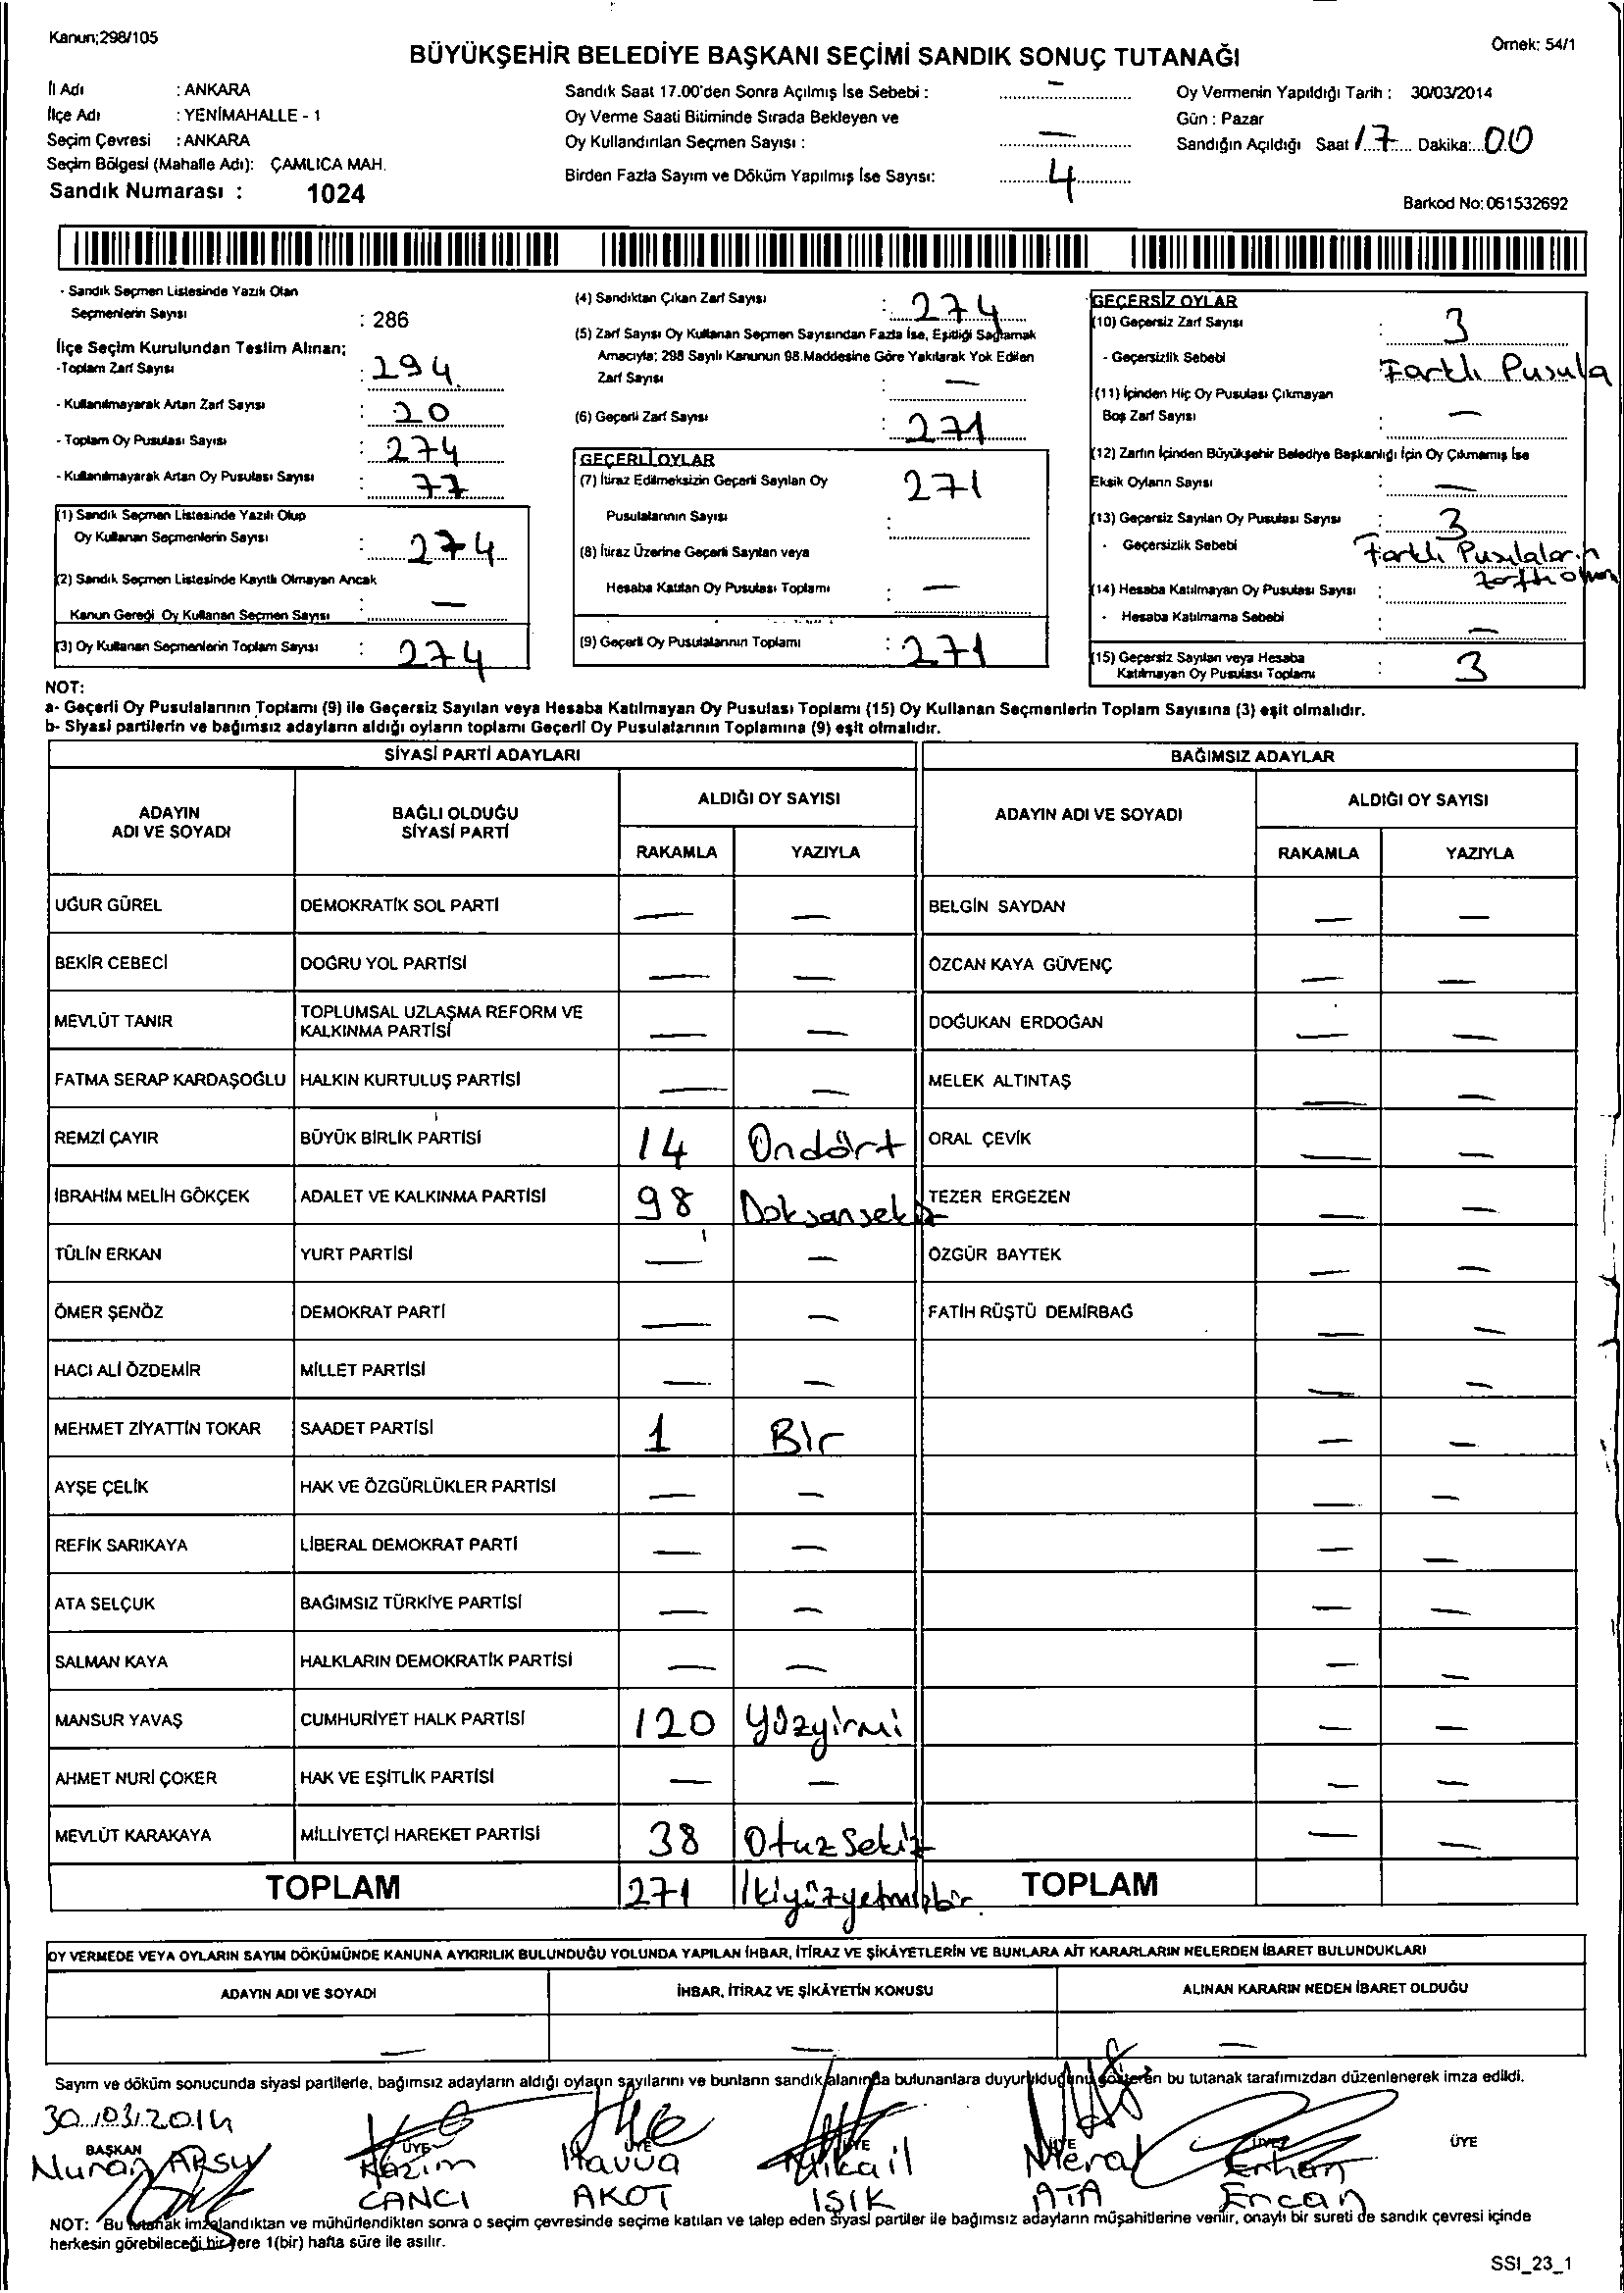 Kanun;298/105
Örnek: 54/1
BÜYÜKŞEHİR BELEDİYE BAŞKANI SEÇİMİ SANDIK SONUÇ TUTANAĞI
İl Adı : ANKARA
İlçe Adı : YENİMAHALLE - 1
Seçim Çevresi : ANKARA
Seçim Bölgesi (Mahalle Adı): ÇAMLICA MAH.
Sandık Numarası : 1024
Sandık Saat 17.00'den Sonra Açılmış İse Sebebi : —
Oy Verme Saati Bitiminde Sırada Bekleyen ve
Oy Kullandırılan Seçmen Sayısı : —
Birden Fazla Sayım ve Döküm Yapılmış İse Sayısı: 4
Oy Vermenin Yapıldığı Tarih : 30/03/2014
Gün : Pazar
Sandığın Açıldığı Saat 17 Dakika: 00
Barkod No: 061532692
- Sandık Seçmen Listesinde Yazılı Olan
Seçmenlerin Sayısı : 286
İlçe Seçim Kurulundan Teslim Alınan;
-Toplam Zarf Sayısı : 294
- Kullanılmayarak Artan Zarf Sayısı : 20
- Toplam Oy Pusulası Sayısı : 274
- Kullanılmayarak Artan Oy Pusulası Sayısı : 77
(1) Sandık Seçmen Listesinde Yazılı Olup
Oy Kullanan Seçmenlerin Sayısı : 274
(2) Sandık Seçmen Listesinde Kayıtlı Olmayan Ancak
Kanun Gereği Oy Kullanan Seçmen Sayısı : —
(3) Oy Kullanan Seçmenlerin Toplam Sayısı : 274
(4) Sandıktan Çıkan Zarf Sayısı : 274
(5) Zarf Sayısı Oy Kullanan Seçmen Sayısından Fazla İse, Eşitliği Sağlamak
Amacıyla; 298 Sayılı Kanunun 98.Maddesine Göre Yakılarak Yok Edilen
Zarf Sayısı : —
(6) Geçerli Zarf Sayısı : 271
GEÇERLİ OYLAR
(7) İtiraz Edilmeksizin Geçerli Sayılan Oy
Pusulalarının Sayısı : 271
(8) İtiraz Üzerine Geçerli Sayılan veya
Hesaba Katılan Oy Pusulası Toplamı : —
(9) Geçerli Oy Pusulalarının Toplamı : 271
GEÇERSİZ OYLAR
(10) Geçersiz Zarf Sayısı : 3
- Geçersizlik Sebebi Farklı Pusula
(11) İçinden Hiç Oy Pusulası Çıkmayan
Boş Zarf Sayısı : —
(12) Zarfın İçinden Büyükşehir Belediye Başkanlığı İçin Oy Çıkmamış İse
Eksik Oyların Sayısı : —
(13) Geçersiz Sayılan Oy Pusulası Sayısı : 3
- Geçersizlik Sebebi Farklı Pusulaların
(14) Hesaba Katılmayan Oy Pusulası Sayısı :
- Hesaba Katılmama Sebebi : —
(15) Geçersiz Sayılan veya Hesaba
Katılmayan Oy Pusulası Toplamı : 3
NOT:
a- Geçerli Oy Pusulalarının Toplamı (9) ile Geçersiz Sayılan veya Hesaba Katılmayan Oy Pusulası Toplamı (15) Oy Kullanan Seçmenlerin Toplam Sayısına (3) eşit olmalıdır.
b- Siyasi partilerin ve bağımsız adayların aldığı oyların toplamı Geçerli Oy Pusulalarının Toplamına (9) eşit olmalıdır.
SİYASİ PARTİ ADAYLARI BAĞIMSIZ ADAYLAR
ADAYIN ADI VE SOYADI BAĞLI OLDUĞU SİYASİ PARTİ ALDIĞI OY SAYISI ADAYIN ADI VE SOYADI ALDIĞI OY SAYISI
RAKAMLA YAZIYLA RAKAMLA YAZIYLA
UĞUR GÜREL DEMOKRATİK SOL PARTİ — — BELGİN SAYDAN — —
BEKİR CEBECİ DOĞRU YOL PARTİSİ — — ÖZCAN KAYA GÜVENÇ — —
MEVLÜT TANIR TOPLUMSAL UZLAŞMA REFORM VE KALKINMA PARTİSİ — — DOĞUKAN ERDOĞAN — —
FATMA SERAP KARDAŞOĞLU HALKIN KURTULUŞ PARTİSİ — — MELEK ALTINTAŞ — —
REMZİ ÇAYIR BÜYÜK BİRLİK PARTİSİ 14 Ondört ORAL ÇEVİK — —
İBRAHİM MELİH GÖKÇEK ADALET VE KALKINMA PARTİSİ 98 Doksansekiz TEZER ERGEZEN — —
TÜLİN ERKAN YURT PARTİSİ — — ÖZGÜR BAYTEK — —
ÖMER ŞENÖZ DEMOKRAT PARTİ — — FATİH RÜŞTÜ DEMİRBAĞ — —
HACI ALİ ÖZDEMİR MİLLET PARTİSİ — — — —
MEHMET ZİYATTİN TOKAR SAADET PARTİSİ 1 Bir — —
AYŞE ÇELİK HAK VE ÖZGÜRLÜKLER PARTİSİ — — — —
REFİK SARIKAYA LİBERAL DEMOKRAT PARTİ — — — —
ATA SELÇUK BAĞIMSIZ TÜRKİYE PARTİSİ — — — —
SALMAN KAYA HALKLARIN DEMOKRATİK PARTİSİ — — — —
MANSUR YAVAŞ CUMHURİYET HALK PARTİSİ 120 Yüzyirmi — —
AHMET NURİ ÇOKER HAK VE EŞİTLİK PARTİSİ — — — —
MEVLÜT KARAKAYA MİLLİYETÇİ HAREKET PARTİSİ 38 OtuzSekiz — —
TOPLAM 271 İkiyüzyetmişbir TOPLAM
OY VERMEDE VEYA OYLARIN SAYIM DÖKÜMÜNDE KANUNA AYKIRILIK BULUNDUĞU YOLUNDA YAPILAN İHBAR, İTİRAZ VE ŞİKÂYETLERİN VE BUNLARA AİT KARARLARIN NELERDEN İBARET BULUNDUKLARI
ADAYIN ADI VE SOYADI İHBAR, İTİRAZ VE ŞİKÂYETİN KONUSU ALINAN KARARIN NEDEN İBARET OLDUĞU
— — —
Sayım ve döküm sonucunda siyasi partilerle, bağımsız adayların aldığı oyların sayılarını ve bunların sandık alanında bulunanlara duyurulduğunu gösteren bu tutanak tarafımızdan düzenlenerek imza edildi.
30.03.2014
BAŞKAN ÜYE ÜYE ÜYE ÜYE ÜYE ÜYE
Nuran Kazım Havva Mikail Meral Erhan
CANCI AKOT IŞIK ATA Ercan
NOT: Bu tutanak imzalandıktan ve mühürlendikten sonra o seçim çevresinde seçime katılan ve talep eden siyasi partiler ile bağımsız adayların müşahitlerine verilir, onaylı bir sureti de sandık çevresi içinde
herkesin görebileceği bir yere 1(bir) hafta süre ile asılır.
SSI_23_1